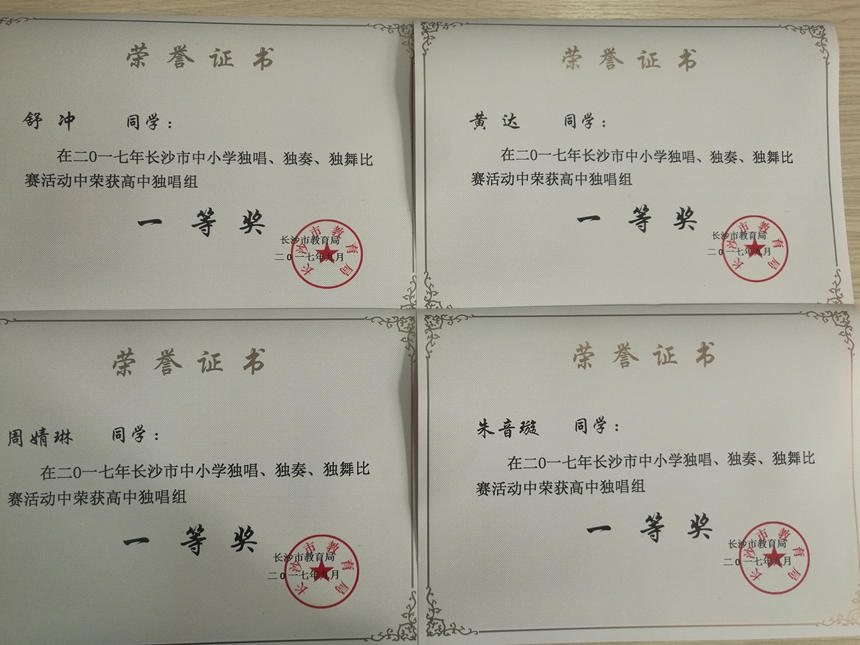 荣誉证书
舒冲 同学：
在二〇一七年长沙市中小学独唱、独奏、独舞比
赛活动中荣获高中独唱组
一等奖
长沙市教育局
二〇一七年 月
长沙市教育局
荣誉证书
黄达 同学：
在二〇一七年长沙市中小学独唱、独奏、独舞比
赛活动中荣获高中独唱组
一等奖
长沙市教育局
二〇一七年 月
长沙市教育局
荣誉证书
周婧琳 同学：
在二〇一七年长沙市中小学独唱、独奏、独舞比
赛活动中荣获高中独唱组
一等奖
长沙市教育局
二〇一七年 月
长沙市教育局
荣誉证书
朱音璇 同学：
在二〇一七年长沙市中小学独唱、独奏、独舞比
赛活动中荣获高中独唱组
一等奖
长沙市教育局
二〇一七年 月
长沙市教育局